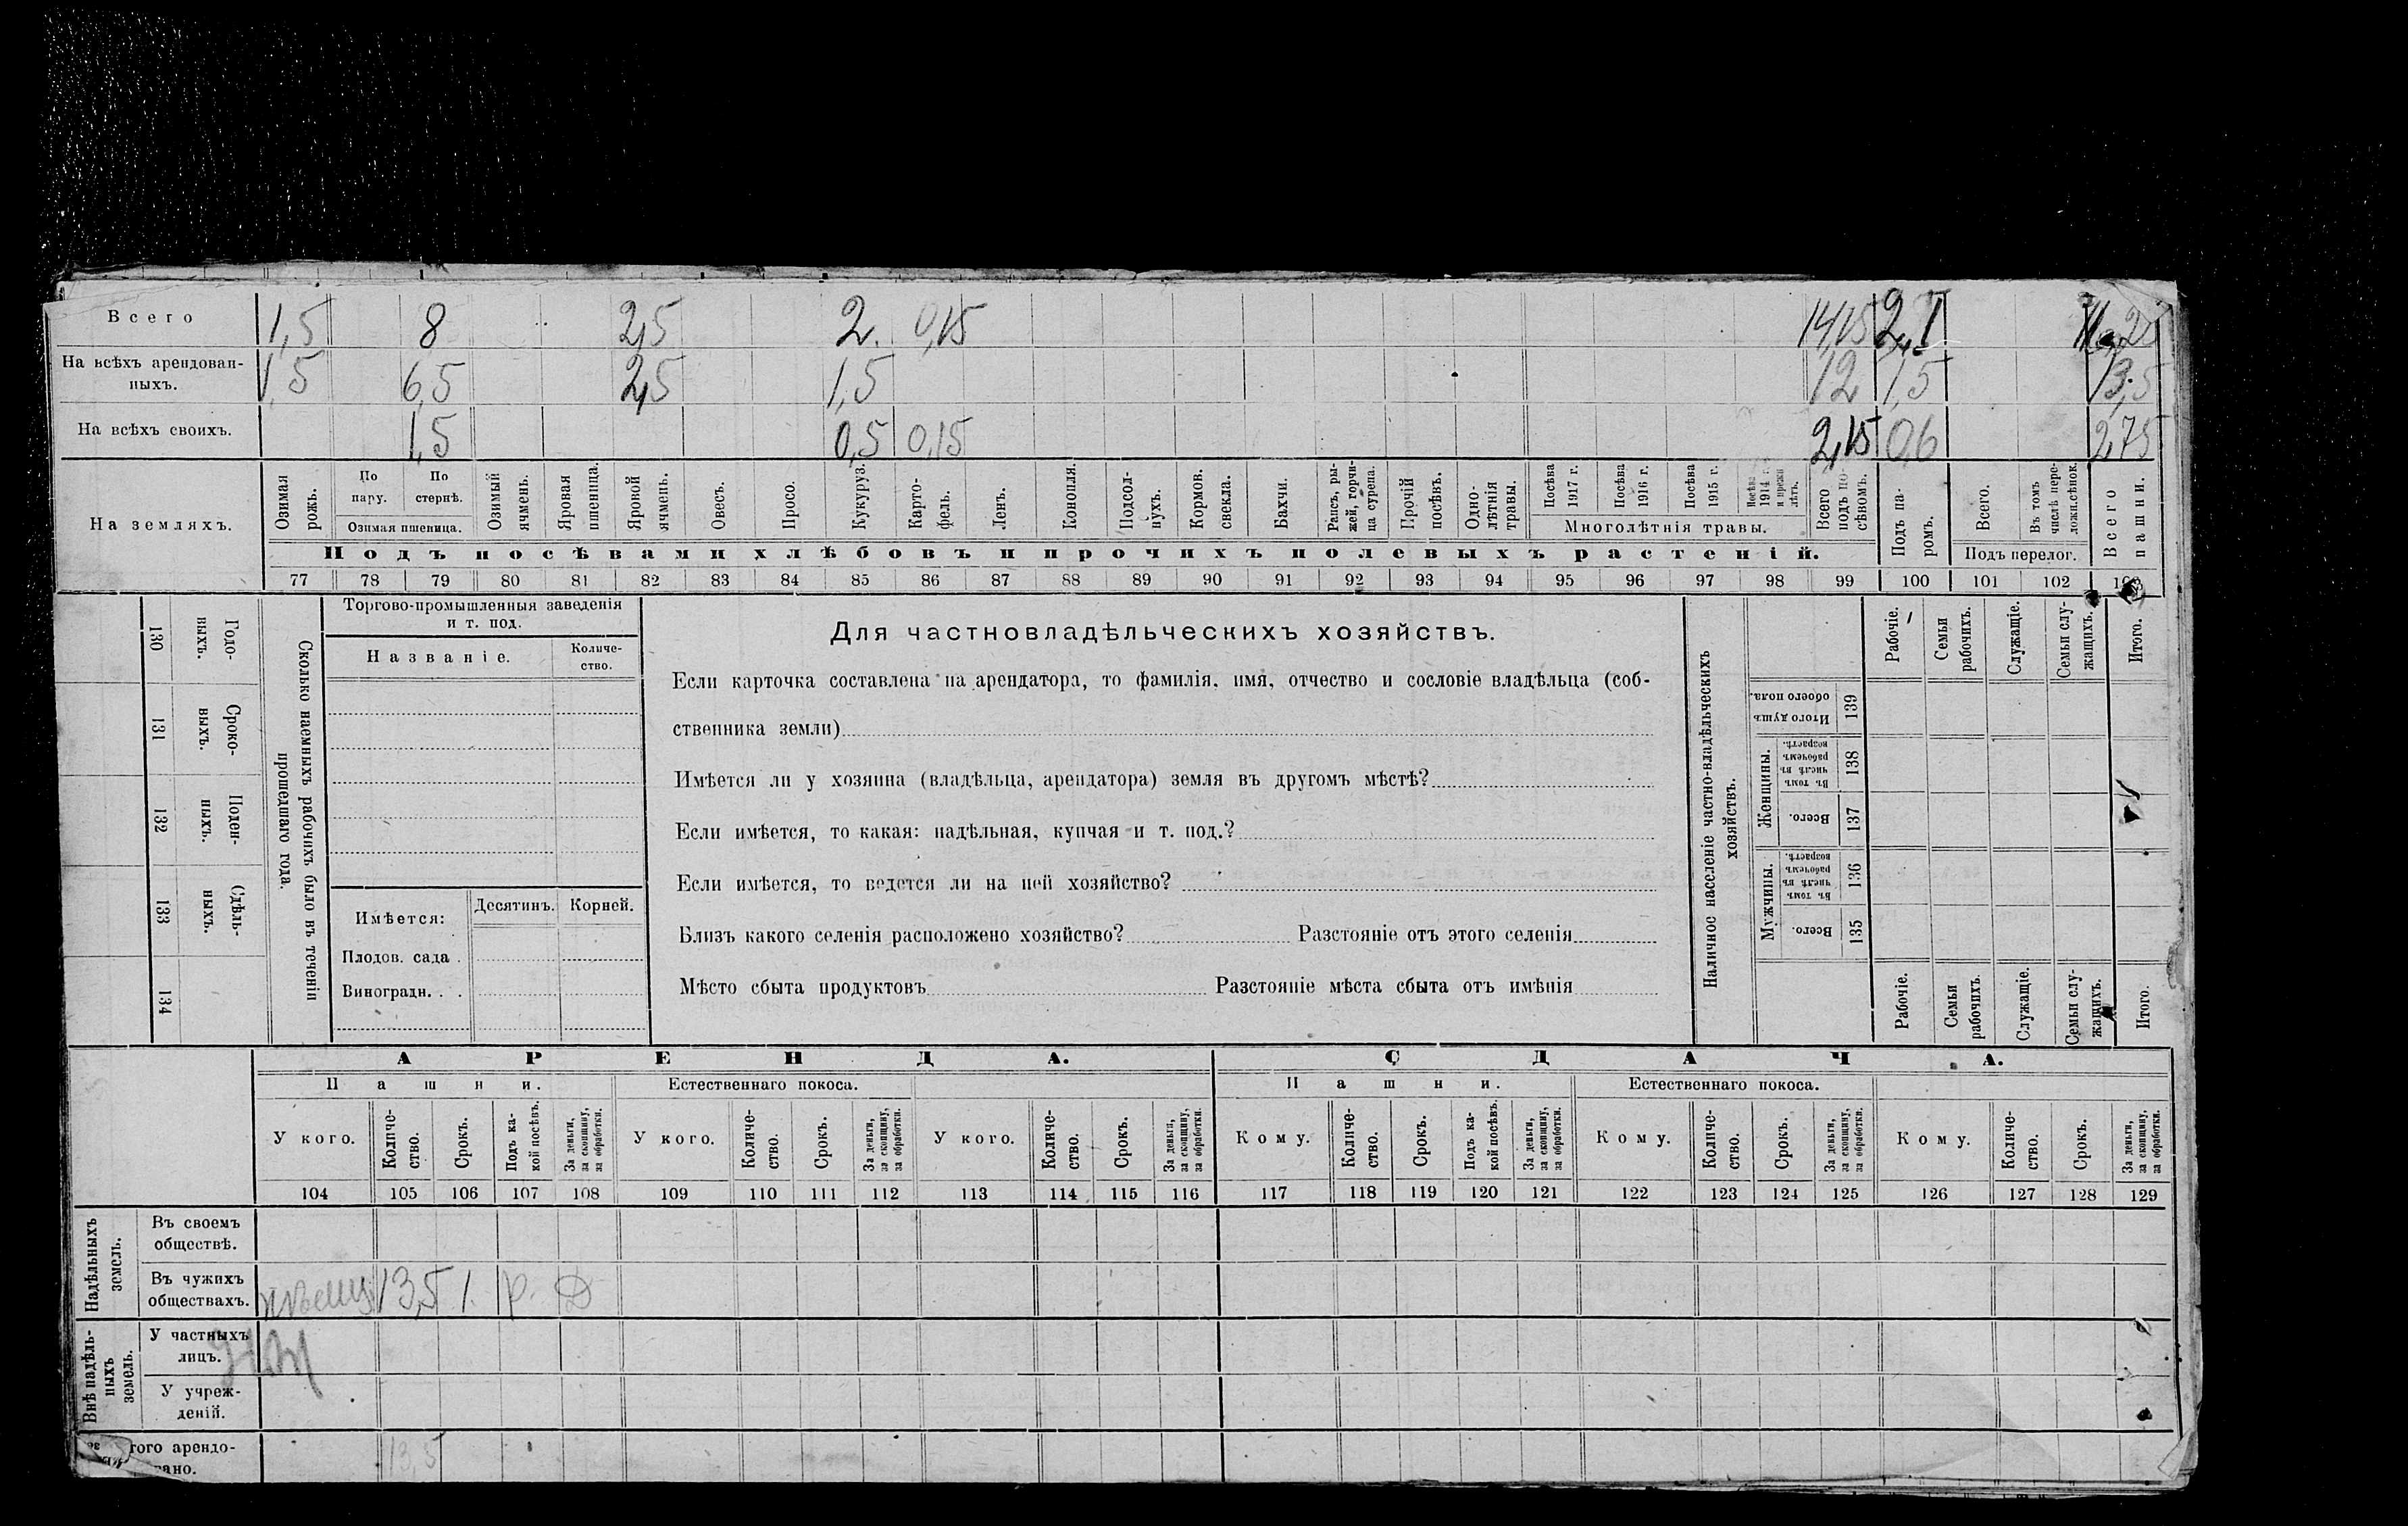 Всего 1,5 8 2,5 2. 0,15 14,15 2,1
На всѣхъ арендован-
ныхъ. 1,5 6,5 2,5 1,5 12 1,5 13,5
На всѣхъ своихъ. 1,5 0,5 0,15 2,15 0,6 2,75
На земляхъ.
Озимая рожь.
По пару.
По стернѣ.
Озимая пшеница.
Озимый ячмень.
Яровая пшеница.
Яровой ячмень.
Овесъ.
Просо.
Кукуруз.
Карто-
фель.
Ленъ.
Конопля.
Подсол-
нухъ.
Кормов. свекла.
Бахчи.
Рапсъ, ры-
жей, горчи-
ца сурепа.
Прочій посѣвъ.
Одно-
лѣтнія травы.
Посѣва 1917 г.
Посѣва 1916 г.
Посѣва 1915 г.
Посѣва 1914 г. и прежн лѣтъ.
Многолѣтнія травы.
Всего подъ по-
сѣвомъ.
Подъ па-
ромъ.
Всего.
Въ томъ числѣ пере-
ложн.сѣнок.
Подъ перелог.
Всего пашни.
Подъ посѣвами хлѣбовъ и прочихъ полевыхъ растеній.
77 78 79 80 81 82 83 84 85 86 87 88 89 90 91 92 93 94 95 96 97 98 99 100 101 102
130 Годо-
ныхъ.
131 Сроко-
выхъ.
132 Поден-
ныхъ.
133 Сдѣль-
ныхъ.
134
Сколько наемныхъ рабочихъ было въ теченіи
прошедшаго года.
Торгово-промышленныя заведенія
и т. под.
Названіе.
Количе-
ство.
Имѣется:
Десятинъ. Корней.
Плодов. сада .
Виноградн. . .
Для частновладѣльческихъ хозяйствъ.
Если карточка составлена на арендатора, то фамилія, имя, отчество и сословіе владѣльца (соб-
ственника земли)
Имѣется ли у хозяина (владѣльца, арендатора) земля въ другомъ мѣстѣ?
Если имѣется, то какая: надѣльная, купчая и т. под.?
Если имѣется, то ведется ли на ней хозяйство?
Близъ какого селенія расположено хозяйство? Разстояніе отъ этого селенія
Мѣсто сбыта продуктовъ Разстояніе мѣста сбыта отъ имѣнія
Наличное населеніе частно-владѣльческихъ
хозяйствъ.
Рабочіе.
Семьи рабочихъ.
Служащіе.
Семьи слу-
жащихъ.
Итого.
Итого душъ обоего пола. 139
Женщины.
Въ томъ числѣ въ рабочемъ возрастѣ. 138
Всего. 137
Мужчины.
Въ томъ числѣ въ рабочемъ возрастѣ. 136
Всего. 135
Рабочіе.
Семьи рабочихъ.
Служащіе.
Семьи слу-
жащихъ.
Итого.
АРЕНДА. СДАЧА.
Пашни. Естественнаго покоса. Пашни. Естественнаго покоса.
У кого.
Количе-
ство.
Срокъ.
Подъ ка-
кой посѣвъ.
За деньги, за скопщину, за обработки.
У кого.
Количе-
ство.
Срокъ.
За деньги, за скопщину, за обработки.
У кого.
Количе-
ство.
Срокъ.
За деньги, за скопщину, за обработки.
Кому.
Количе-
ство.
Срокъ.
Подъ ка-
кой посѣвъ.
За деньги, за скопщину, за обработки.
Кому.
Количе-
ство.
Срокъ.
За деньги, за скопщину, за обработки.
Кому.
Количе-
ство.
Срокъ.
За деньги, за скопщину, за обработки.
104 105 106 107 108 109 110 111 112 113 114 115 116 117 118 119 120 121 122 123 124 125 126 127 128 129
Надѣльныхъ земель.
Въ своемъ
обществѣ.
Въ чужихъ
обществахъ. 13,5 1. р. Д
Внѣ надѣль-
ныхъ земель.
У частныхъ
лицъ.
У учреж-
деній.
того арендо-
вано. 13,5